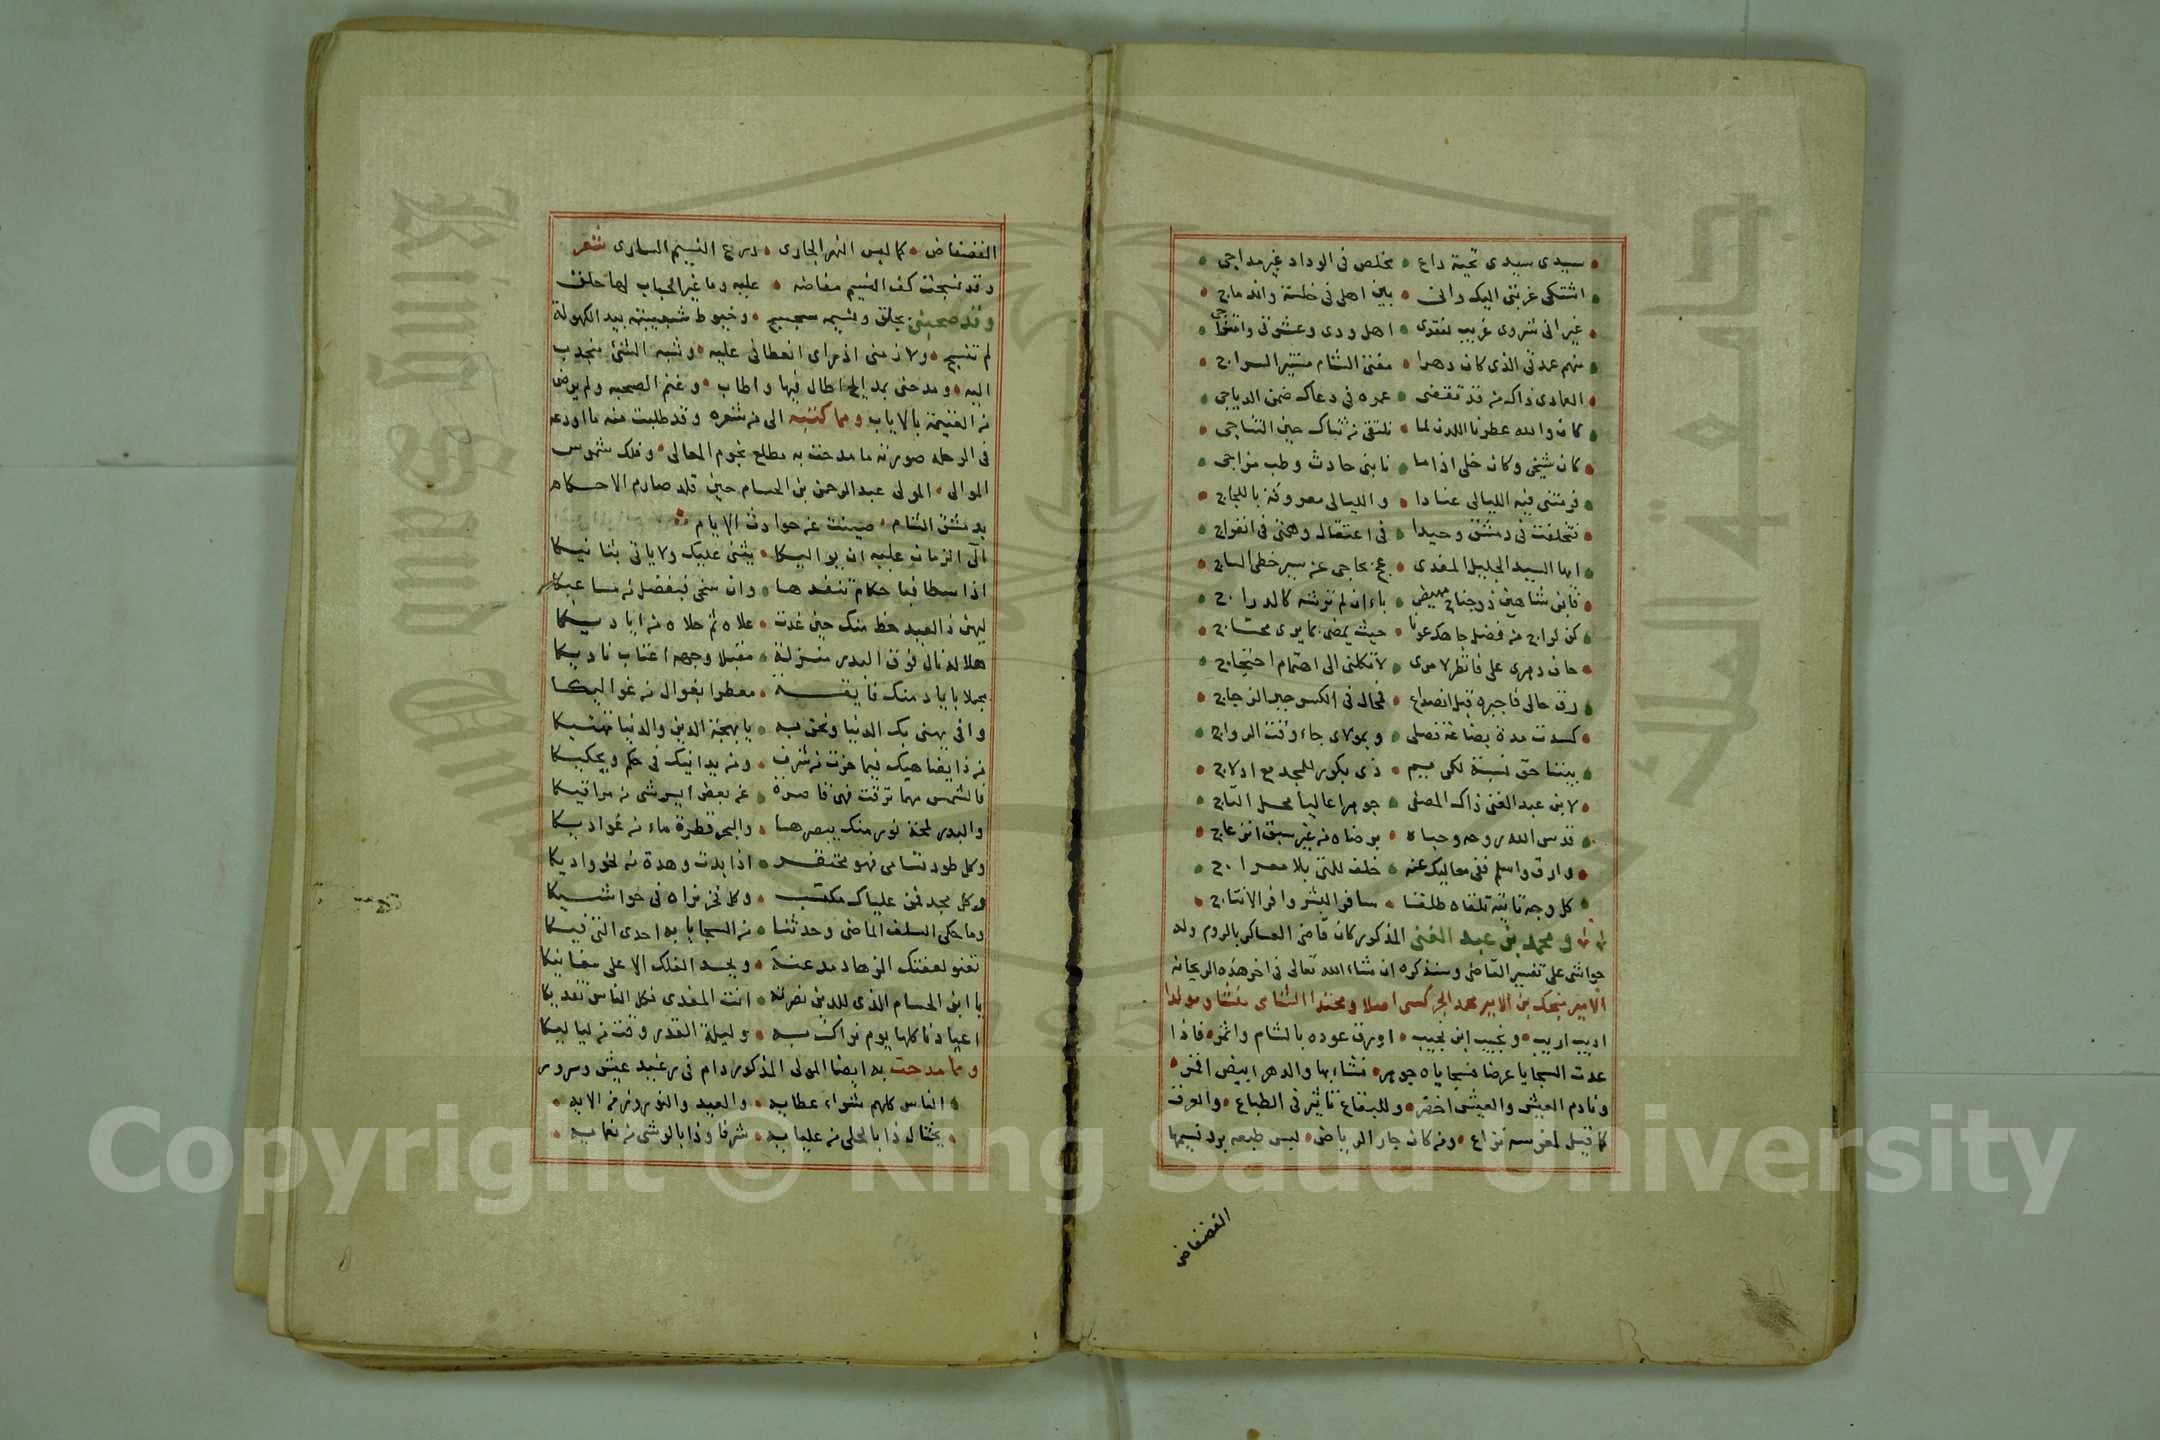 سيدى سيدى تحية داع • مخلص فى الوداد غير مداجى
اشتكى غربتى اليك وانى • بين اهلى فى خلسة واندماج
غير انى ثروى غريب لفقدى • اهل ودى وعشرتى
منهم عمدتى الذى كان دهرا • مفتى الشام مستنير السراج
العمادى ذاك من قد تقضى • عمره فى دعاك ضمن الدياجى
كان والله عطرنا اللدن لما • نلتقى من ثناك حين التناجى
كان شيخى وكان خلى اذا ما • نابنى حادث وطب مزاجى
فرمتنى فيه الليالى عنادا • والليالى معروفة باللجاج
فتخلفت فى دمشق وحيدا • فى اعتقال وهمتى فى انفراج
ايها السيد الجليل المفدى • عن سير خطى
فابن شاهين ذو جناح مهيض • بك ان لم ترشه كالدراج
كن لراج من فضل جاهك عونا • حيث يمضى بما يرى محتاج
خان دهرى على فانظر لامرى • لا تكلنى الى اهتمام احتجاج
رق حالى فاجبره قبل انصداع • فمحال فى الكسر جبر الزجاج
كسدت مدة بضاعة فضلى • وبمولاى جاء وقت الرواج
بيننا حق نسبة لكريم • ذى بكور للمجد مع ادلاج
لابن عبد الغنى ذاك المصفى • جوهرا عاليا محل التاج
قدس الله روحه وحباه • برضاه من غير سبق انزعاج
وارق واسلم ففى معاليك عنه • خلف للتقى بلا معراج
كل وجه تاتيه تلقاه طلقا • سافر البشر وافر الانتاج
ومحمد بن عبد الغنى المذكور كان قاضى العساكر بالروم وله
حواشى على تفسير القاضى وسنذكره ان شاء الله تعالى فى اخر هذه الريحانه
الامير منجك بن الامير محمد الجركسى اصلا ومحتدا الشامى منشا ومولدا
اديب اريب • ونجيب ابن نجيب • اورق عوده بالشام واثمر • فاذا
عدت السجايا عرضا فسجاياه جوهر • نشا بها والدهر ابيض اقمر •
ونادم العيش والعيش اخضر • وللبقاع تاثير فى الطباع • والعرق
كما قيل لمغرسه نزاع • ومن كان جار الرياض • لبس طبعه برد نسيمها
الفضفاض
الفضفاض • كما لبس النهر الجارى • درع النسيم السارى شعر
وقد نسجت كف النسيم مفاضة • عليه وما غير الحباب لها حلق
وقد صحبنى بخلق وشيمه سجسج • وخيوط شبيبته بيد الكهولة
لم تنسج • ولازمنى اذ راى انعطافى عليه • وشبه الشئ منجذب
اليه • ومدحنى بمدايح اطال فيها واطاب • وغنم الصحبه ولم يرض
من الغنيمة بالاياب ومما كتبه الى من شعره وقد طلبت منه ما اودعه
فى الرحله صورته ما مدحت به مطلع نجوم المعالى • وفلك شموس
الموالى • المولى عبد الرحمن بن الحسام حين قلد صارم الاحكام
بدمشق الشام • صينت عن حوادث الايام
آلى الزمان عليه ان يواليكا • يثنى عليك ولا ياتى بثانيكا
اذا سطا فبا حكام تنفذها • وان سخى فبفضل من مساعيكا
ليهن ذا العيد حظ منك حين غدت • علاه ثم حلاه من اياديكا
هلاله نال فوق البدر منزلة • مقبلا وجهه اعتاب ناديكا
مجملا باياد منك فايقة • معطرا بغوال من غواليكا
وافى يهنى بك الدنيا ونحن به • يا بهجة الدين والدنيا نهنيكا
من ذا يضاهيك فيما حزت من شرف • ومن يدانيك فى حكم ويحكيكا
فالشمس مهما ترقت فهى قاصرة • عن بعض ايسر شى من مراقيكا
والبدر لمحة نور منك يبصرها • والبحر قطرة ماء من غواديكا
وكل طود تسامى فهو محتقر • اذا بدت وهدة من نحو واديكا
وكل مجد فمن علياك مكتسب • وكل فخر نراه فى حواشيكا
وما حكى السلف الماضى وحدثنا • من السجايا به احدى التى فيكا
تعنو لعفتك الزهاد مذعنة • ويحسد الفلك الاعلى مغانيكا
يا ابن الحسام الذى للدين نصرته • انت المفدى فكل الناس تفديكا
اعيادنا كلها يوم نراك به • وليلة القدر وقت من لياليكا
ومما مدحت به ايضا المولى المذكور دام فى رغيد عيش وسرور
الناس كلهم شراء عطايه • والعيد والنوروز من الايه
يختال ذا بالحلى من عليايه • شرفا وذا بالوشى من نعمايه
Copyright © King Saud University
King Saud University
1957